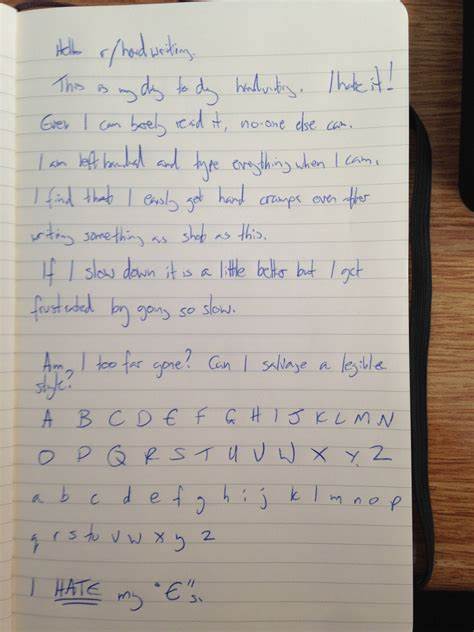 Hello r/handwriting.
This is my day to day handwriting. I hate it!
Even I can barely read it, no-one else can.
I am left handed and type everything when I can.
I find that I easily get hand cramps even after
writing something as short as this.
If I slow down it is a little better but I get
frustrated by going so slow.
Am I too far gone? Can I salvage a legible
style?
A B C D E F G H I J K L M N
O P Q R S T U V W X Y Z
a b c d e f g h i j k l m n o p
q r s t u v w x y z
I HATE my "E"s.